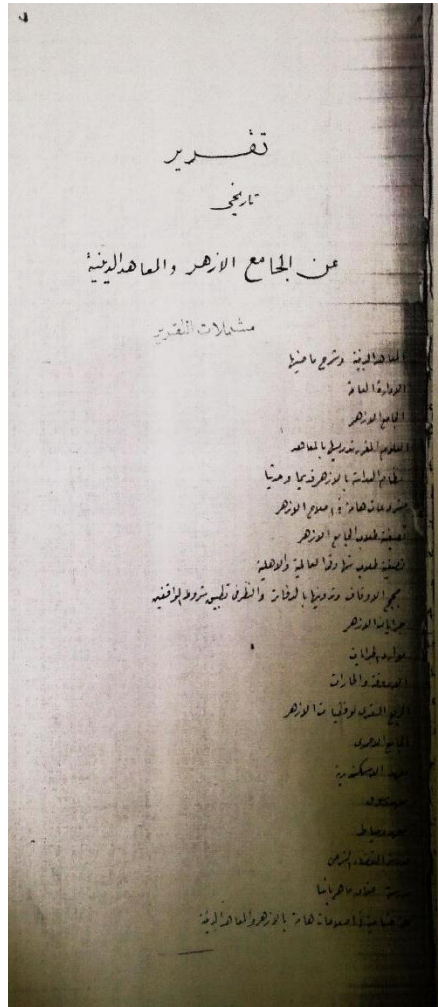 تقرير
تاريخي
عن الجامع الازهر والمعاهد الدينية
مشتملات التقرير
المعاهد الدينية وشرح ماضيها
الادارة العامة
الجامع الازهر
العلوم المقرر تدريسها بالمعاهد
نظام الدراسة بالازهر قديما وحديثا
مشروعات هامة في اصلاح الازهر
تصفية طلاب الجامع الازهر
تصفية طلاب شهادتي العالمية والاهلية
حجج الاوقاف وتدوينها بالدفاتر والنظر في تطبيق شروط الواقفين
جرايات الازهر
موارد الجرايات
الاروقة والحارات
الريع السنوى لاوقاف الازهر
الجامع الاحمدى
معهد الاسكندرية
معهد دسوق
معهد دمياط
مدرسة القضاء الشرعى
مدرسة عثمان ماهر باشا
في اصلاحات هامة بالازهر والمعاهد الدينية